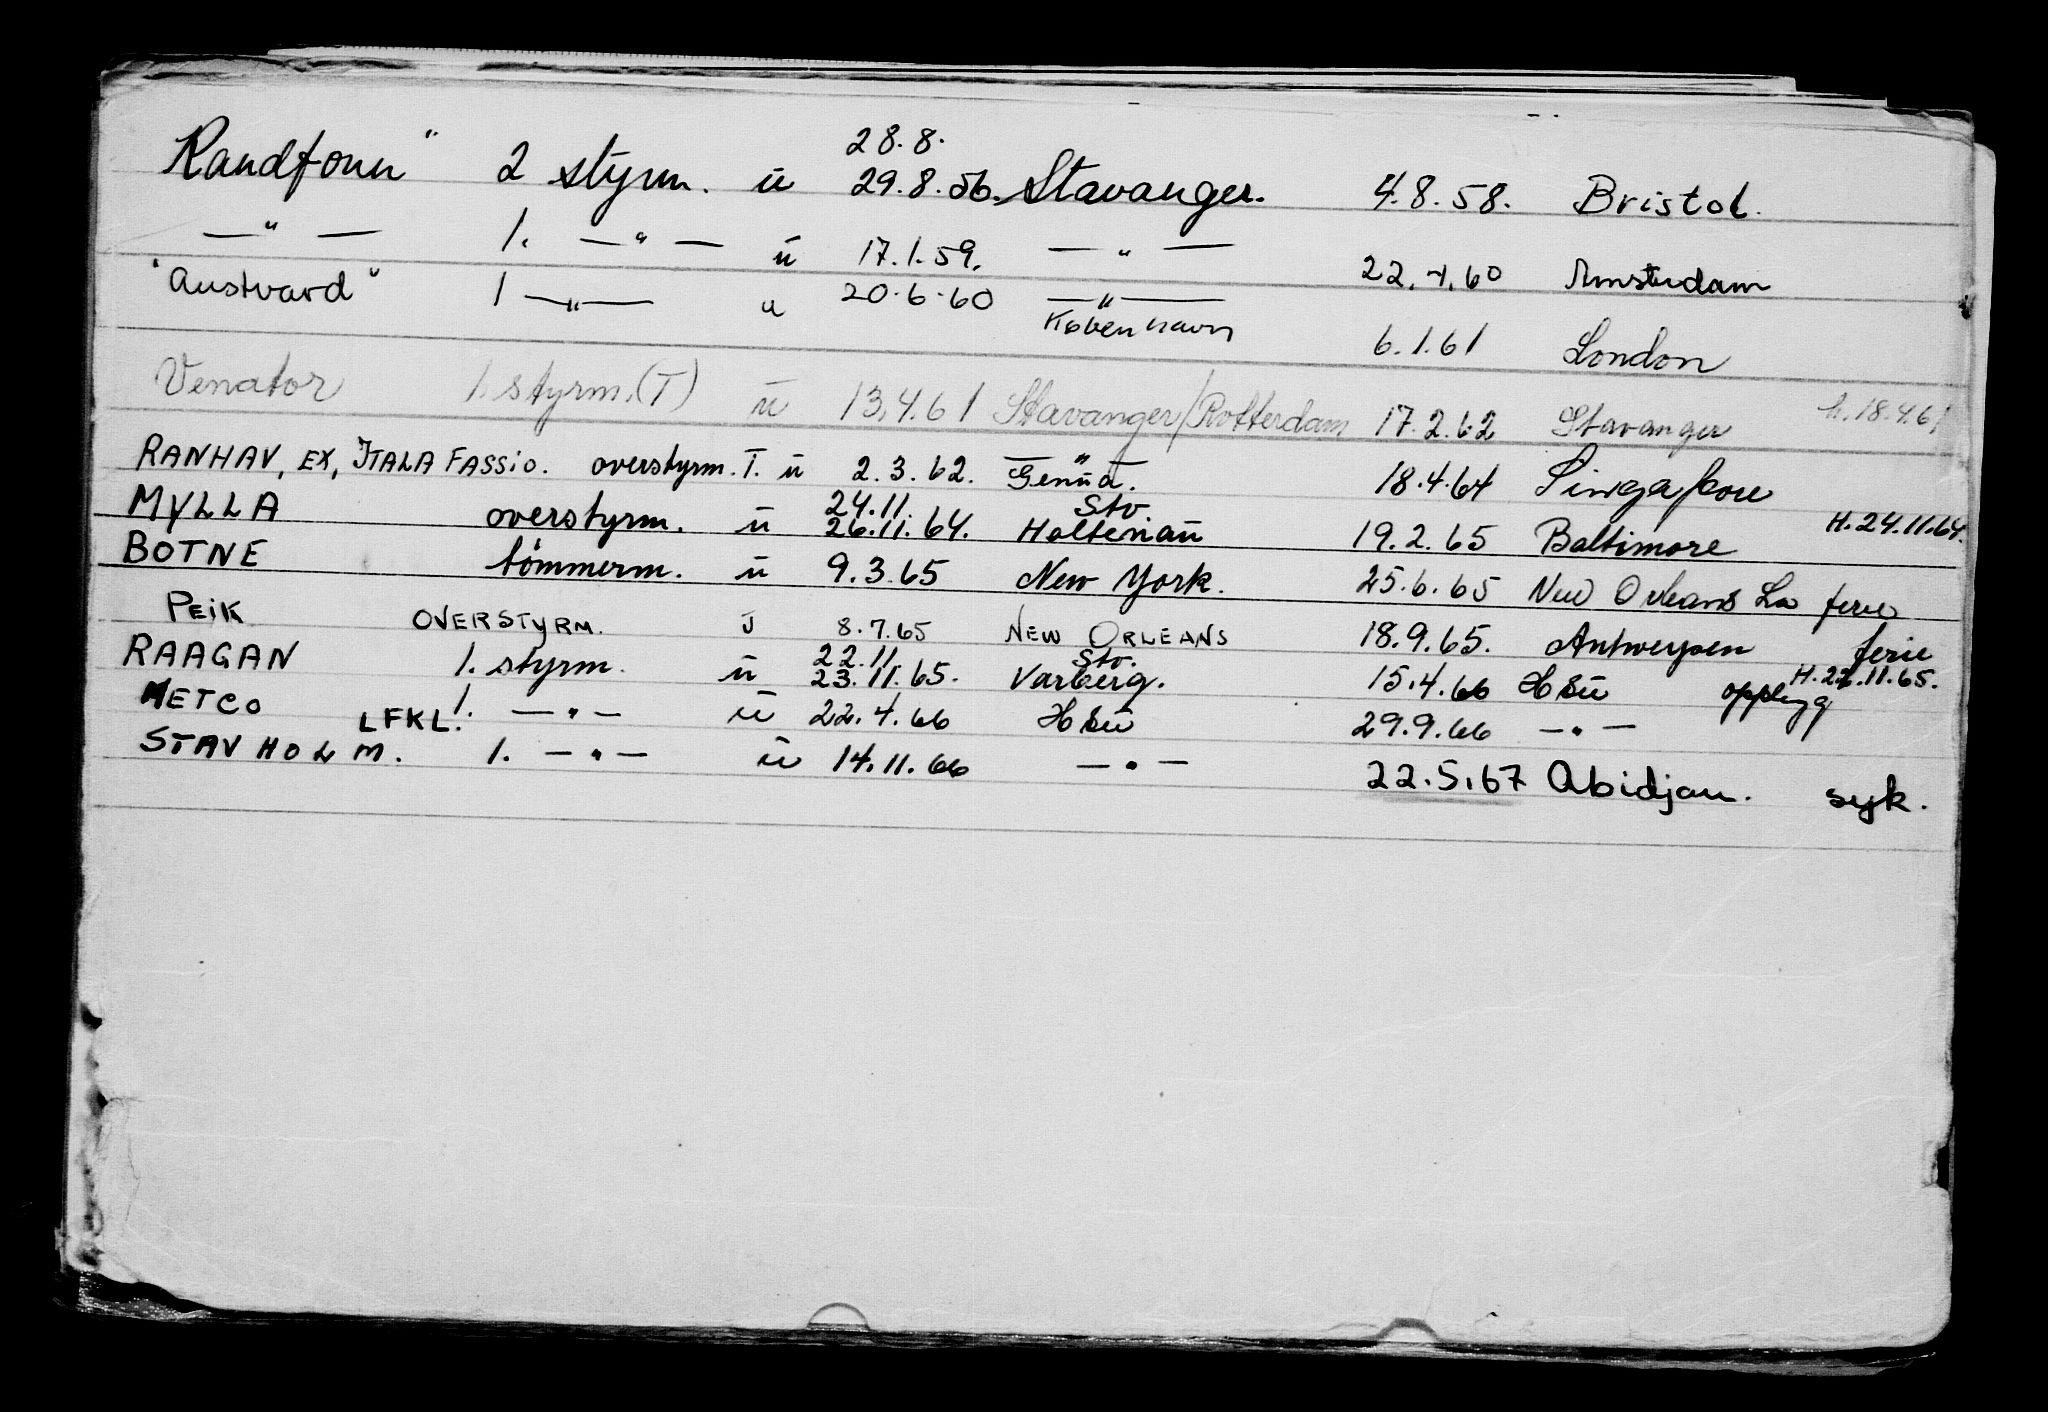 28.8.
Randfonn" 2 styrm. u 29.8.56. Stavanger. 4.8.58. Bristol.
—"— 1. —"— u 17.1.59. —"— 22.4.60 Amsterdam
"Austvard" 1 —"— u 20.6.60 —"—
København 6.1.61 London
Venator 1. styrm. (T) u 13.4.61 Stavanger/Rotterdam 17.2.62 Stavanger h.18.4.61
RANHAV, EX, ITALA FASSIO. overstyrm. T. u 2.3.62. —"— Genua. 18.4.64 Singapore
24.11. Stv.
MYLLA overstyrm. u 26.11.64. Holtenau 19.2.65 Baltimore H.24.11.64.
BOTNE tömmerm. u 9.3.65 New York. 25.6.65 New Orleans La ferie
PEIK OVERSTYRM. U 8.7.65 NEW ORLEANS 18.9.65. Antwerpen ferie
22.11. Stv.
RAAGAN 1. styrm. u 23.11.65. Varberg. 15.4.66 Hsu opplegg H.22.11.65.
METCO LFKL. 1. —"— u 22.4.66 Hsu 29.9.66 —"—
STAVHOLM. 1. —"— u 14.11.66 —"— 22.5.67 Abidjan. syk.